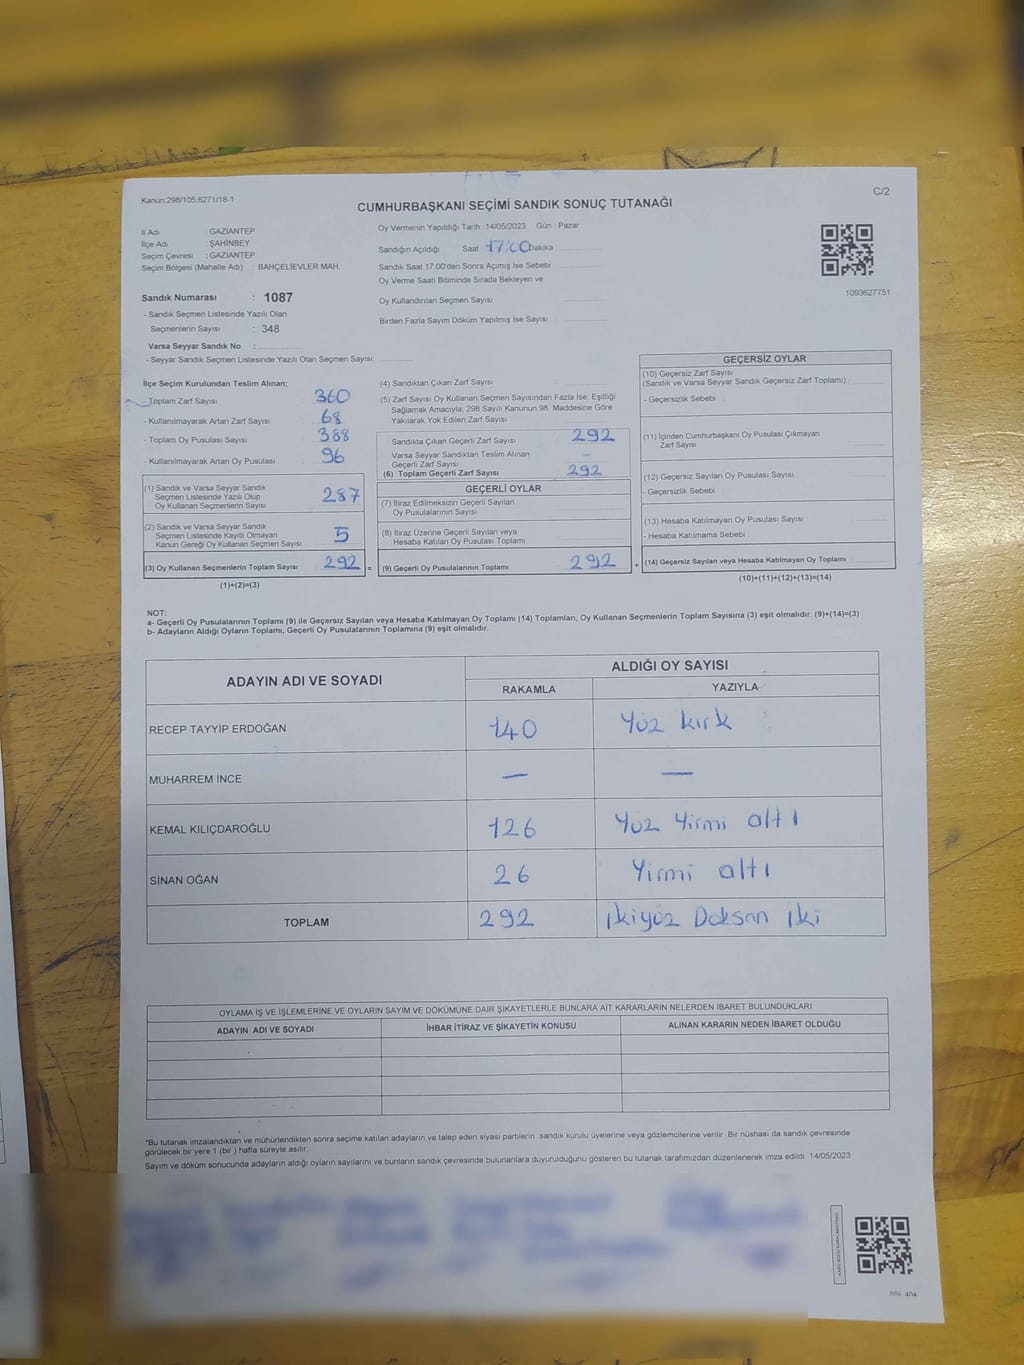 Kanun:298/105;6271/18-1
C/2
CUMHURBAŞKANI SEÇİMİ SANDIK SONUÇ TUTANAĞI
İl Adı : GAZİANTEP
İlçe Adı : ŞAHİNBEY
Seçim Çevresi : GAZİANTEP
Seçim Bölgesi (Mahalle Adı) : BAHÇELİEVLER MAH.
Oy Vermenin Yapıldığı Tarih :14/05/2023 Gün : Pazar
Sandığın Açıldığı Saat 17:00 Dakika :
Sandık Saat 17:00'den Sonra Açılmış İse Sebebi :
Oy Verme Saati Bitiminde Sırada Bekleyen ve
Oy Kullandırılan Seçmen Sayısı :
Birden Fazla Sayım Döküm Yapılmış İse Sayısı :
1093627751
Sandık Numarası : 1087
- Sandık Seçmen Listesinde Yazılı Olan
Seçmenlerin Sayısı : 348
Varsa Seyyar Sandık No :
- Seyyar Sandık Seçmen Listesinde Yazılı Olan Seçmen Sayısı:
İlçe Seçim Kurulundan Teslim Alınan;
- Toplam Zarf Sayısı : 360
- Kullanılmayarak Artan Zarf Sayısı : 68
- Toplam Oy Pusulası Sayısı : 388
- Kullanılmayarak Artan Oy Pusulası : 96
(1) Sandık ve Varsa Seyyar Sandık
Seçmen Listesinde Yazılı Olup
Oy Kullanan Seçmenlerin Sayısı : 287
(2) Sandık ve Varsa Seyyar Sandık
Seçmen Listesinde Kayıtlı Olmayan
Kanun Gereği Oy Kullanan Seçmen Sayısı : 5
(3) Oy Kullanan Seçmenlerin Toplam Sayısı : 292 =
(1)+(2)=(3)
(4) Sandıktan Çıkan Zarf Sayısı :
(5) Zarf Sayısı Oy Kullanan Seçmen Sayısından Fazla İse, Eşitliği
Sağlamak Amacıyla; 298 Sayılı Kanunun 98. Maddesine Göre
Yakılarak Yok Edilen Zarf Sayısı :
Sandıkta Çıkan Geçerli Zarf Sayısı : 292
Varsa Seyyar Sandıktan Teslim Alınan
Geçerli Zarf Sayısı : -
(6) Toplam Geçerli Zarf Sayısı : 292
GEÇERLİ OYLAR
(7) İtiraz Edilmeksizin Geçerli Sayılan
Oy Pusulalarının Sayısı :
(8) İtiraz Üzerine Geçerli Sayılan veya
Hesaba Katılan Oy Pusulası Toplamı :
(9) Geçerli Oy Pusulalarının Toplamı : 292 +
GEÇERSİZ OYLAR
(10) Geçersiz Zarf Sayısı
(Sandık ve Varsa Seyyar Sandık Geçersiz Zarf Toplamı) :
- Geçersizlik Sebebi :
(11) İçinden Cumhurbaşkanı Oy Pusulası Çıkmayan
Zarf Sayısı :
(12) Geçersiz Sayılan Oy Pusulası Sayısı :
- Geçersizlik Sebebi :
(13) Hesaba Katılmayan Oy Pusulası Sayısı :
- Hesaba Katılmama Sebebi :
(14) Geçersiz Sayılan veya Hesaba Katılmayan Oy Toplamı :
(10)+(11)+(12)+(13)=(14)
NOT:
a- Geçerli Oy Pusulalarının Toplamı (9) ile Geçersiz Sayılan veya Hesaba Katılmayan Oy Toplamı (14) Toplamları, Oy Kullanan Seçmenlerin Toplam Sayısına (3) eşit olmalıdır. (9)+(14)=(3)
b- Adayların Aldığı Oyların Toplamı, Geçerli Oy Pusulalarının Toplamına (9) eşit olmalıdır.
ADAYIN ADI VE SOYADI ALDIĞI OY SAYISI
RAKAMLA YAZIYLA
RECEP TAYYİP ERDOĞAN 140 Yüz kırk
MUHARREM İNCE — —
KEMAL KILIÇDAROĞLU 126 Yüz Yirmi altı
SİNAN OĞAN 26 Yirmi altı
TOPLAM 292 İkiyüz Doksan iki
OYLAMA İŞ VE İŞLEMLERİNE VE OYLARIN SAYIM VE DÖKÜMÜNE DAİR ŞİKAYETLERLE BUNLARA AİT KARARLARIN NELERDEN İBARET BULUNDUKLARI
ADAYIN ADI VE SOYADI İHBAR İTİRAZ VE ŞİKAYETİN KONUSU ALINAN KARARIN NEDEN İBARET OLDUĞU
*Bu tutanak imzalandıktan ve mühürlendikten sonra seçime katılan adayların ve talep eden siyasi partilerin sandık kurulu üyelerine veya gözlemcilerine verilir. Bir nüshası da sandık çevresinde
görülecek bir yere 1 (bir ) hafta süreyle asılır.
Sayım ve döküm sonucunda adayların aldığı oyların sayılarını ve bunların sandık çevresinde bulunanlara duyurulduğunu gösteren bu tutanak tarafımızdan düzenlenerek imza edildi. 14/05/2023